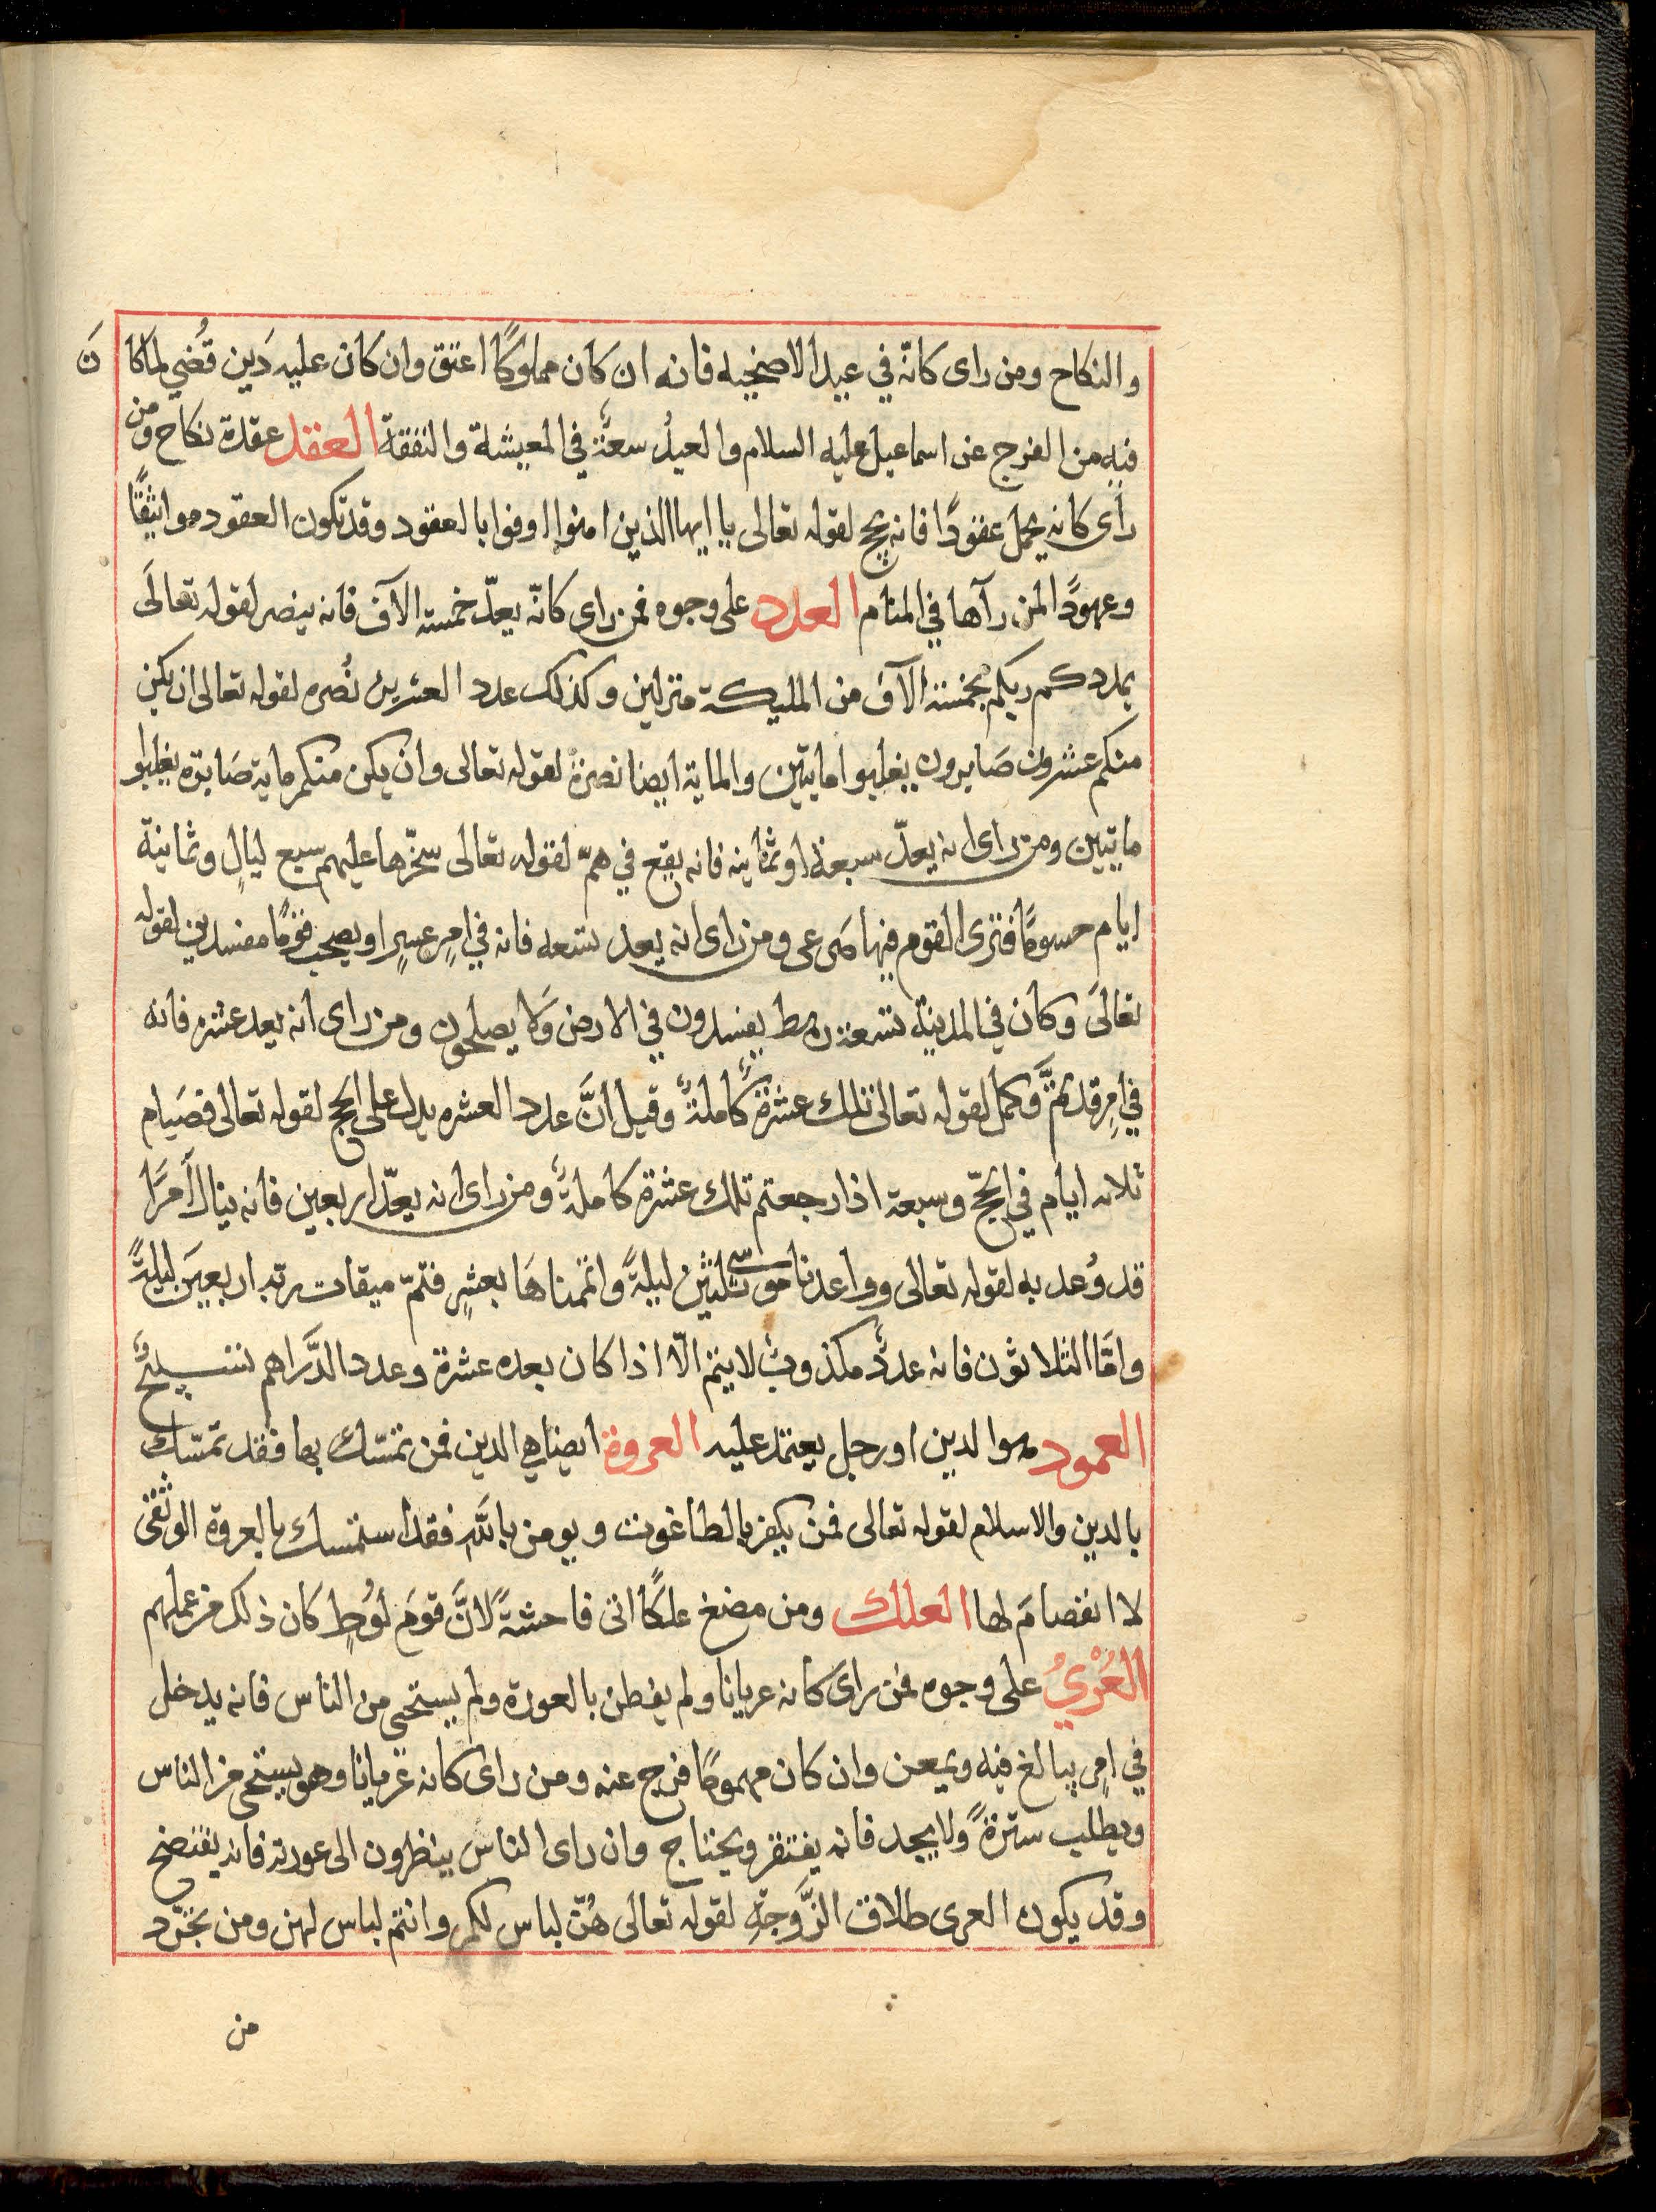 والنكاح ومن راى كانّه في عيد الاضحيه فانه ان كان مملوكًا اعتق وان كان عليه دَين قُضي لما كا نَ
فيه من الفرج عن اسماعيل عليه السلام والعيدُ سعةٌ في المعيشة والنفقة العقد عقدة نكاح ومن
رأى كانه يحمل عقودًا فانه يحج لقوله تعالى يا ايها الذين امنوا اوفوا بالعقود وقد تكون العقود مواثيقًا
وعهودًا لمن رآها في المنام العدد على وجوه فمن راى كانّه يعدّ خمسة الآف فانه ينصر لقوله تعالَى
يمددكم ربكم بخمسة الآف من المليكة منزلين وكذلك عدد العشرين نُصره لقوله تعالى ان يكن
منكم عشرون صَابرون يغلبوا مايتين والماية ايضا نصرةٌ لقوله تعالى وان يكن منكم ماية صَابرة يغلبوا
مايتين ومن راى انه يعدّ سبعة او ثمانيه فانه يقع في همّ لقوله تعالى سخّرها عليهم سبع ليالٍ وثمانية
ايام حسومًا فترى القوم فيها صَرعى ومن راى انه يعد تسعه فانه في امرٍ عسرٍ او يصحب قومًا مفسدين لقوله
تعالَى وكان في المدينة تسعة رهط يفسدون في الارض وَلا يصلحون ومن راى انه يعد عشره فانه
في امرٍ قد تمَّ وَكمل لقوله تعالى تلك عشرةٌ كاملةٌ وقيل انَّ عدد العشره يدل على الحج لقوله تعالى فصَيام
ثلاثه ايام في الحجّ وسبعة اذا رجعتم تلك عشرة كاملةٌ ومن راى انه يعدّ اربعين فانه ينال أمرًا
قد وُعد به لقوله تعالى وواعدنا موسى ثلثين ليلةً واتممناهَا بعشرٍ فتمّ ميقات ربّه اربعينَ ليلةً
وامَّا الثلاثون فانه عددٌ مكذوبٌ لا يتم الّا اذا كان بعده عشرة وعدد الدَّراهم تسبيحٌ
العمود هو الدين او رجل يعتمد عليه العروة ايضا هي الدين فمن تمسّك بها فقد تمسّك
بالدين والاسلام لقوله تعالى فمن يكفر بالطاغوت ويومن بالله فقد استمسك بالعروة الوثقى
لا انفصامَ لها العلك ومن مضغ علكًا اتى فاحشةً لانَّ قومَ لُوطٍ كان ذلك من عملهم
العُرْيُ على وجوه فمن راىَ كانه عريانا ولم يفطن بالعورة ولم يستحى من الناس فانه يدخل
في امرٍ يبالغ فيه ويمعن وان كان مهمومًا فرج عنه ومن راى كانه عريانا وهو يستحى من الناس
ويطلب سترةً ولا يجد فانه يفتقر ويحتاج وان راى الناس ينظرون الى عورته فانه يفتضح
وقد يكون العرى طلاق الزَّوجةِ لقوله تعالى هُنّ لباس لكم وانتم لباس لهن ومن تجرّد
من